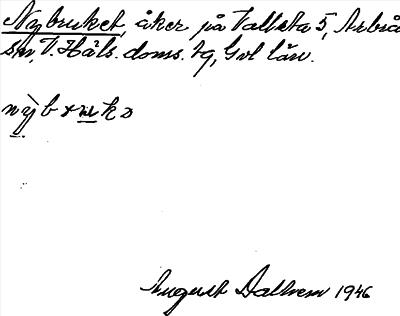 Nybruket, åker på Vallsta 5, Arbrå
sn, V. Häls. doms. tg, Gvl län.
August Dalberm 1946